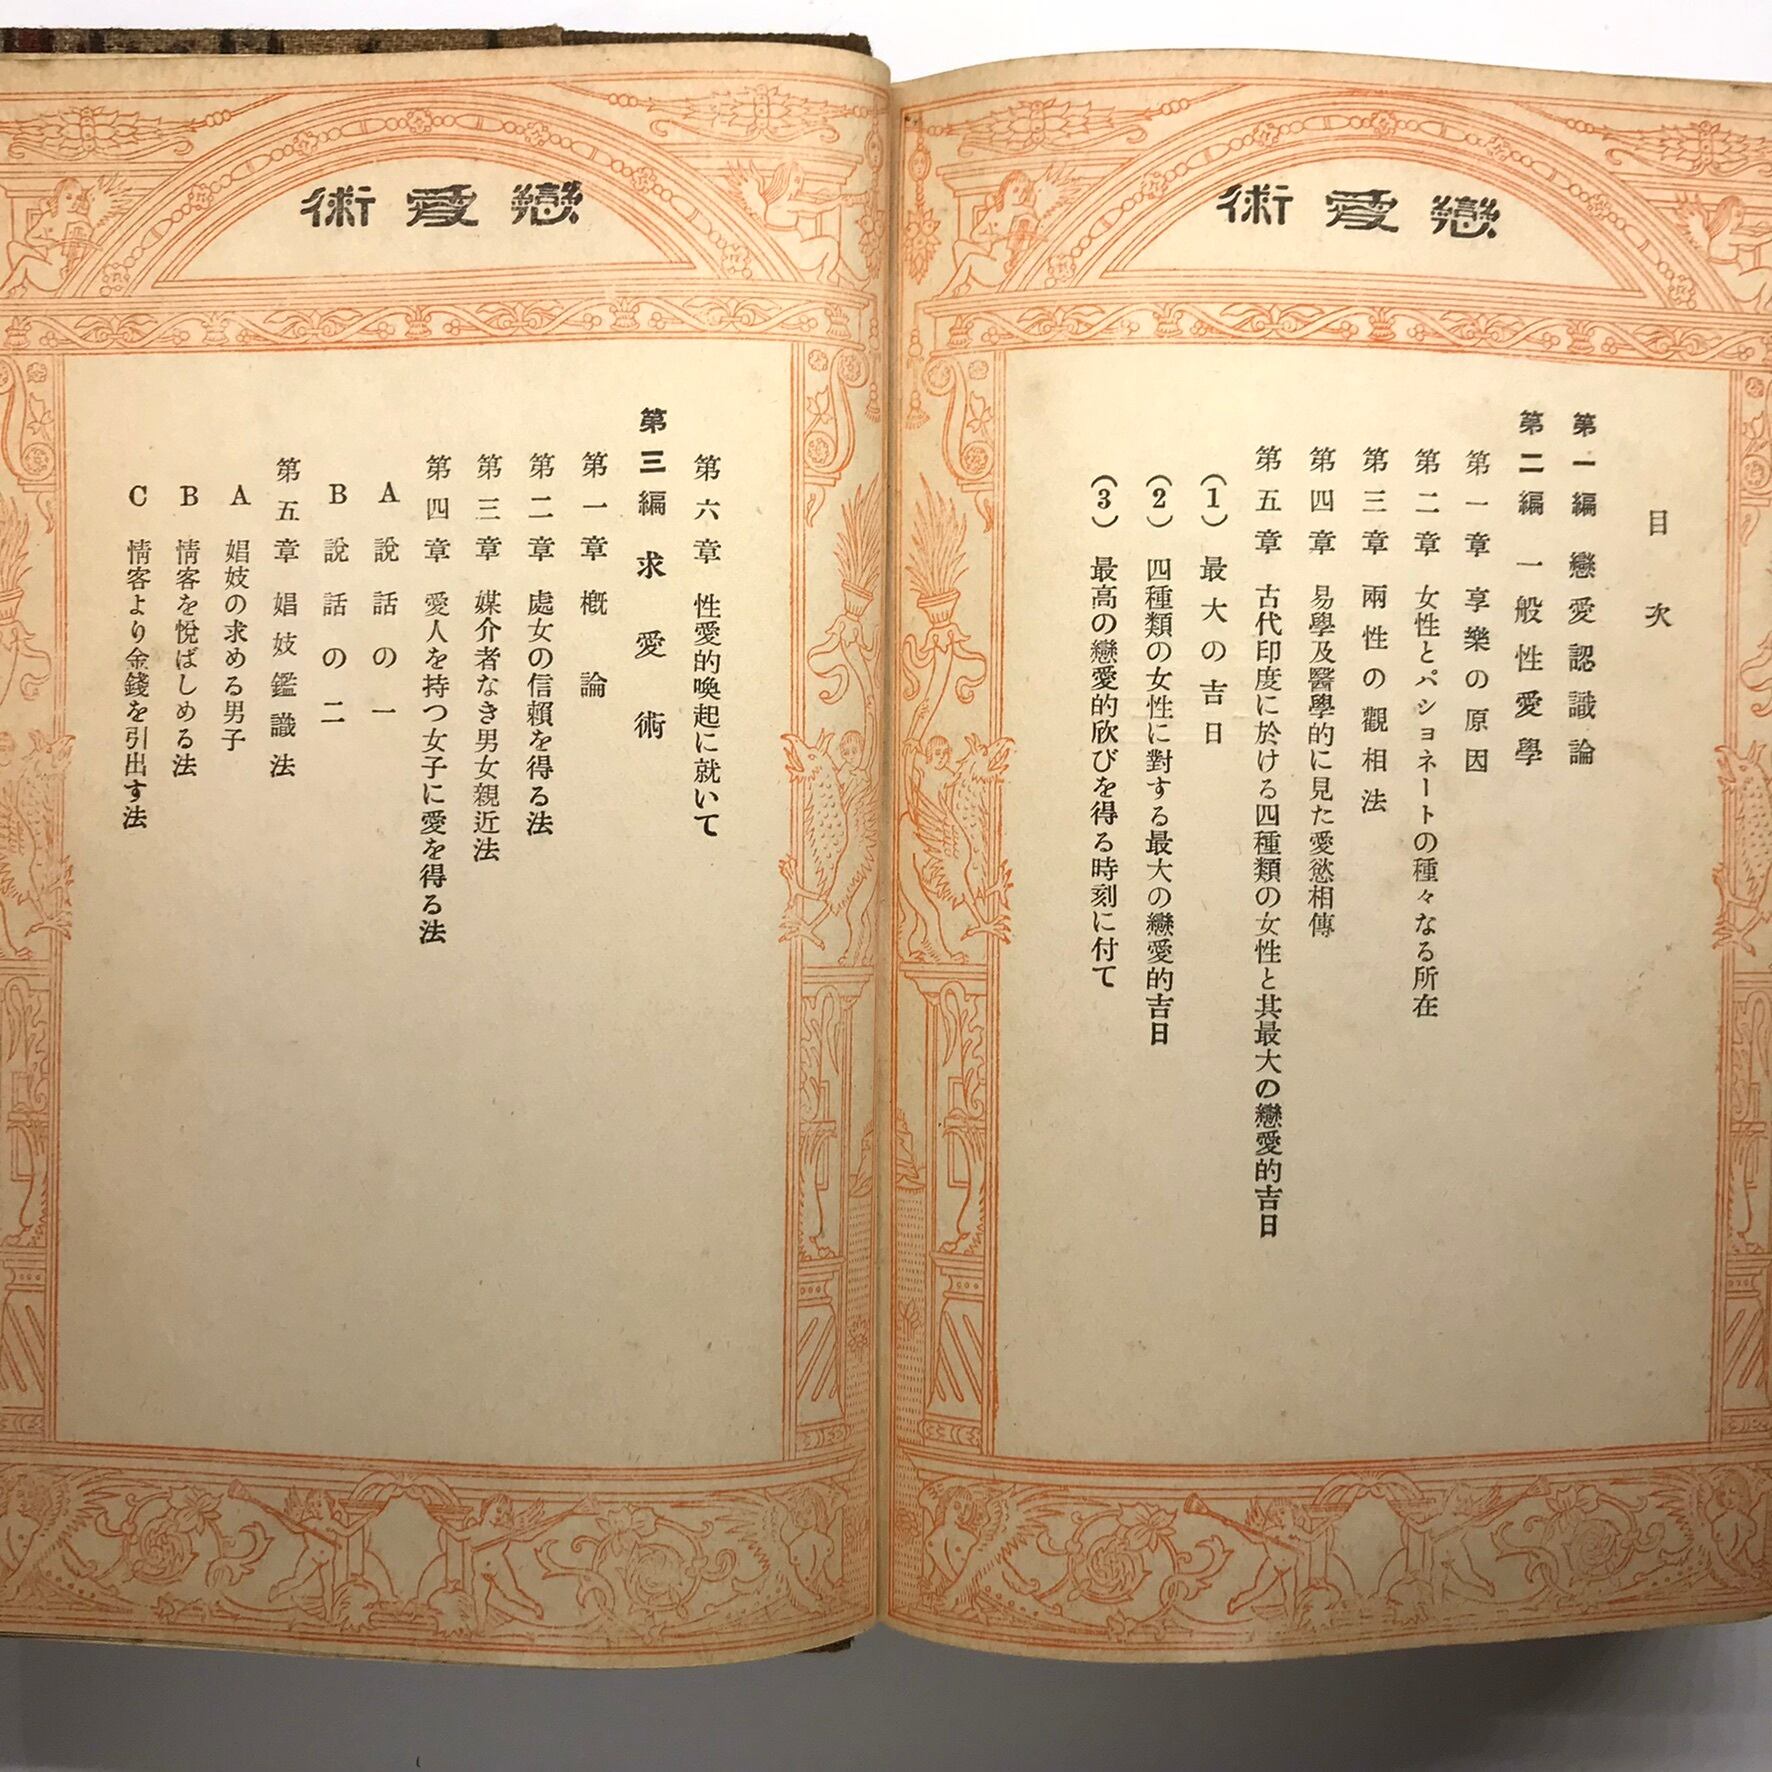 戀愛術
目次
第一編 戀愛認識論
第二編 一般性愛學
第一章 享樂の原因
第二章 女性とパショネートの種々なる所在
第三章 兩性の觀相法
第四章 易學及醫學的に見た愛慾相傳
第五章 古代印度に於ける四種類の女性と其最大の戀愛的吉日
(1) 最大の吉日
(2) 四種類の女性に對する最大の戀愛的吉日
(3) 最高の戀愛的欣びを得る時刻に付て
戀愛術
第六章 性愛的喚起に就いて
第三編 求愛術
第一章 概論
第二章 處女の信賴を得る法
第三章 媒介者なき男女親近法
第四章 愛人を持つ女子に愛を得る法
A 說話の一
B 說話の二
第五章 娼妓鑑識法
A 娼妓の求める男子
B 情客を悅ばしめる法
C 情客より金錢を引出す法